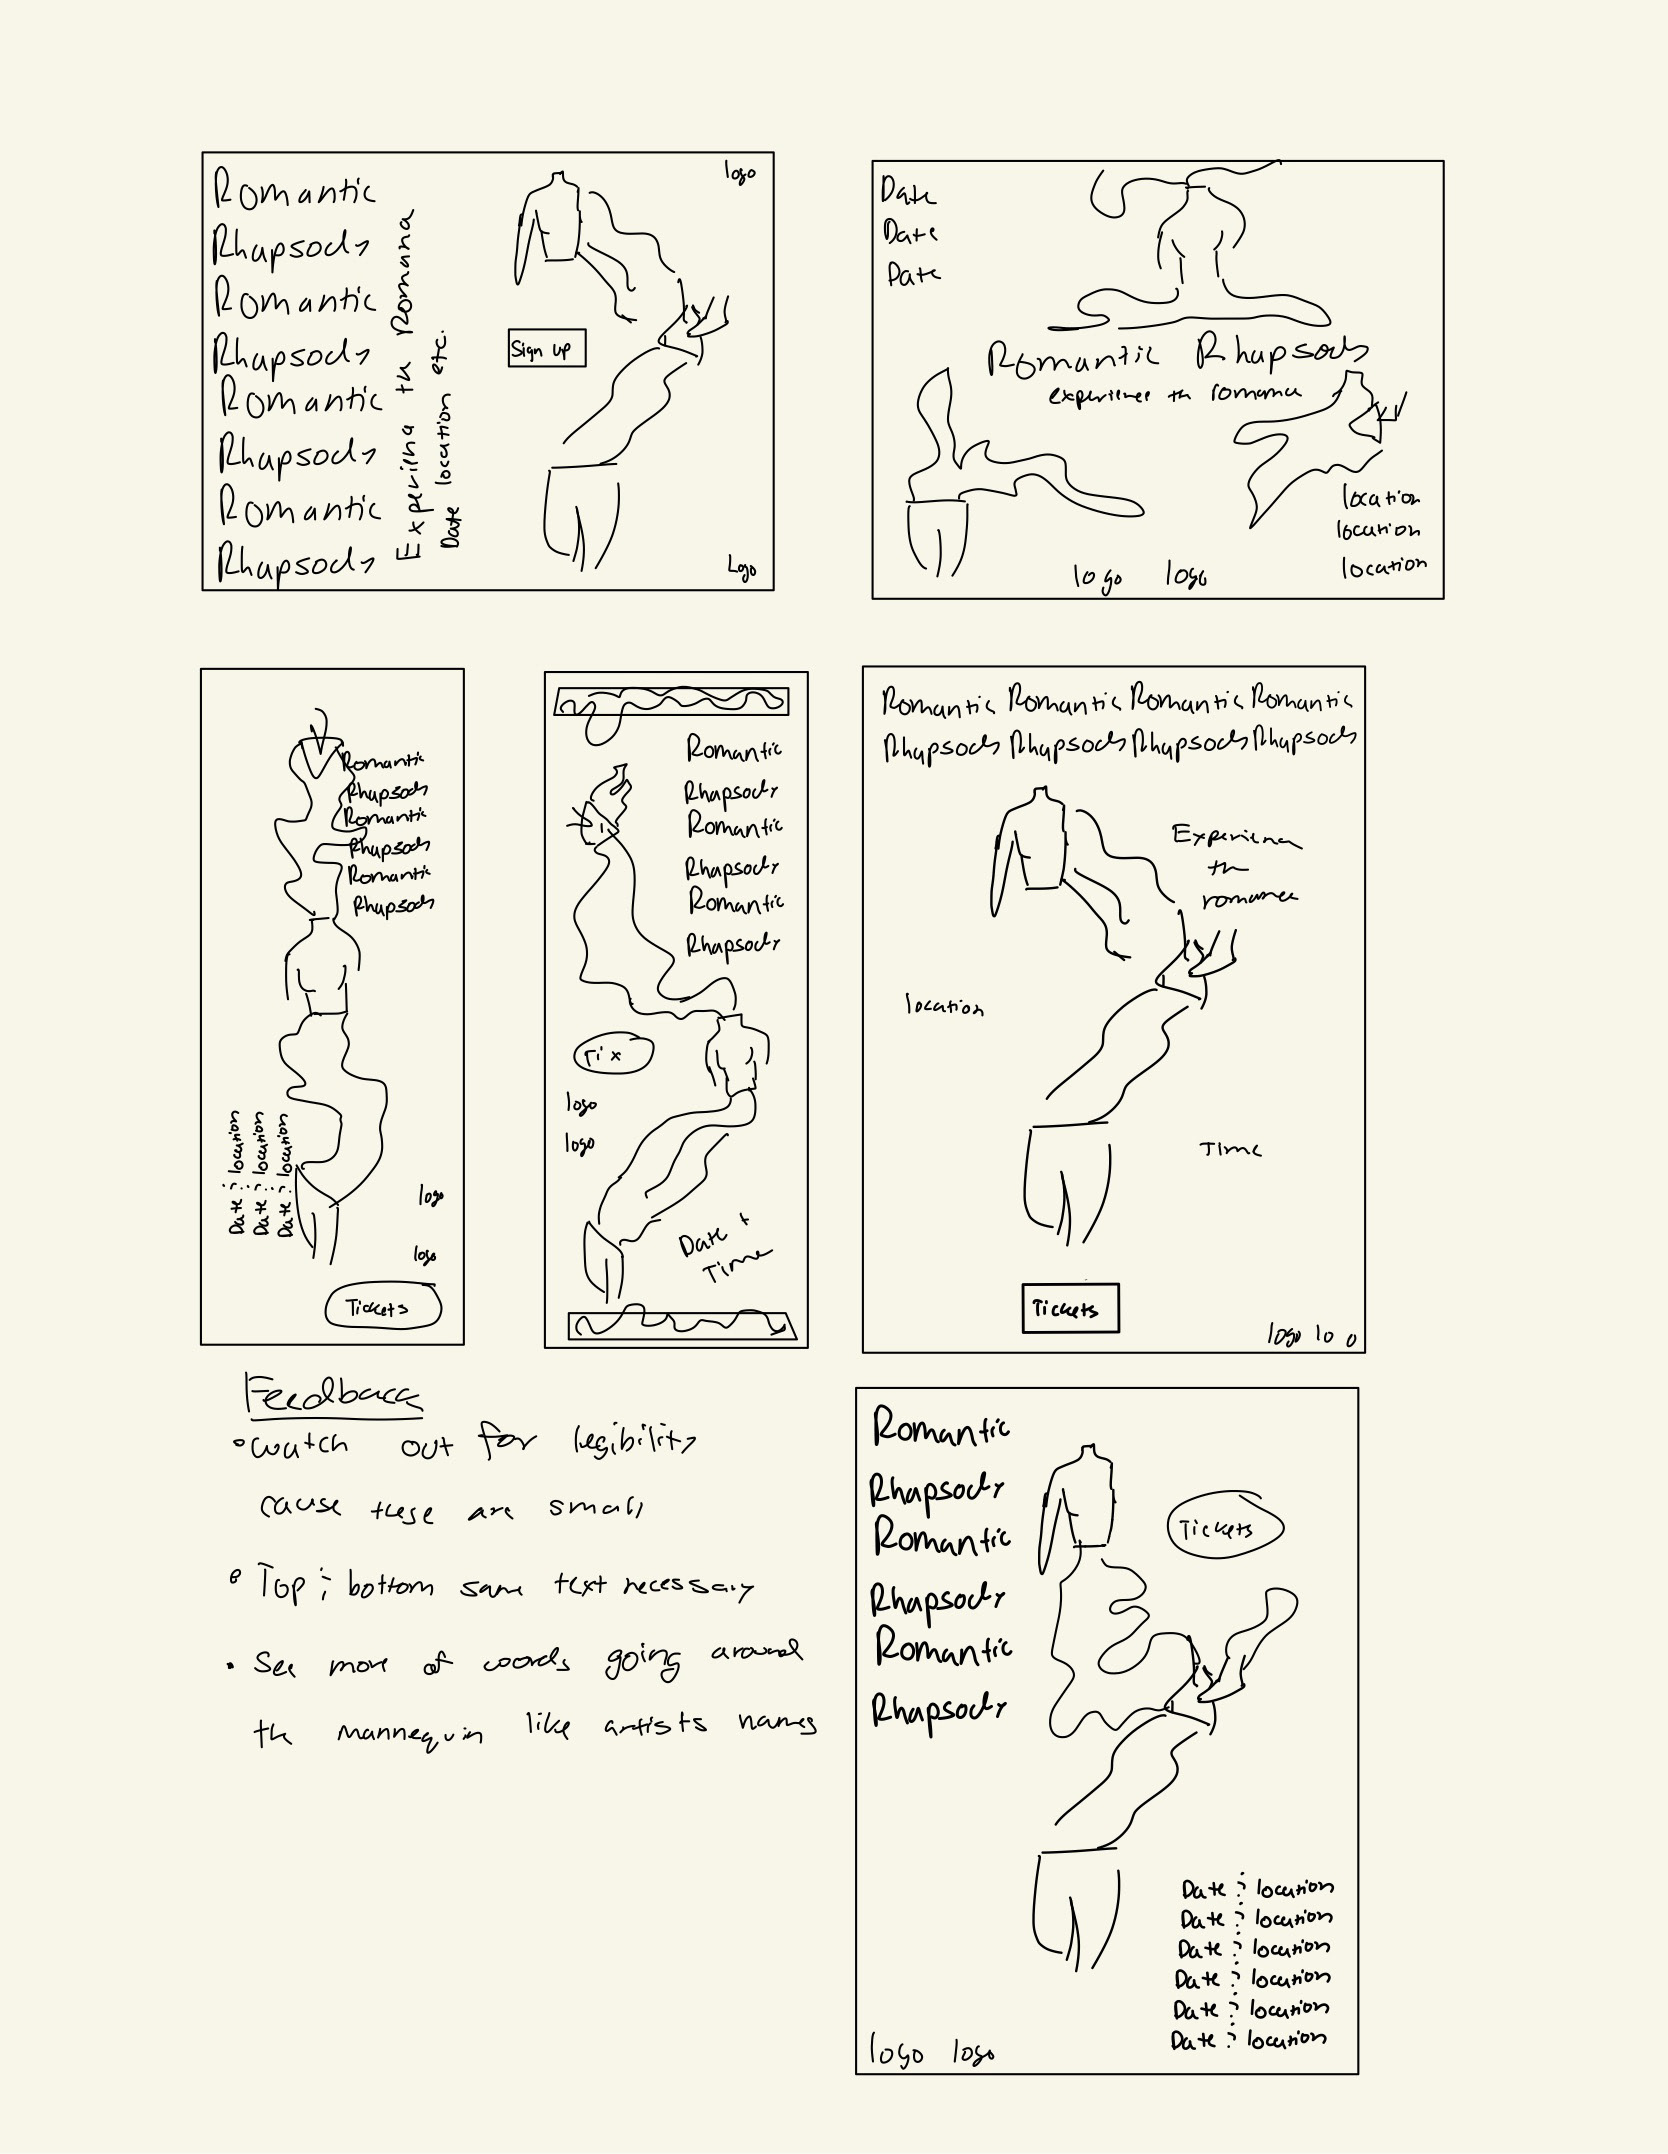 Romantic
Rhapsody
Romantic
Rhapsody
Romantic
Rhapsody
Romantic
Rhapsody
Experience th Romana
Date location etc.
Sign up
logo
Logo
Date
Date
Date
Romantic Rhapsody
experience th romance
location
location
location
logo logo
Romantic
Rhapsody
Romantic
Rhapsody
Romantic
Rhapsody
Date : location
Date : location
Date : location
logo
logo
Tickets
Romantic
Rhapsody
Romantic
Rhapsody
Romantic
Rhapsody
Tix
logo
logo
Date +
Time
Romantic Romantic Romantic Romantic
Rhapsody Rhapsody Rhapsody Rhapsody
Experience
th
romance
location
Time
Tickets
logo lo o
Feedback
• Watch out for legibility
cause these are small
• Top ; bottom same text necessary
• See more of words going around
the mannequin like artists names
Romantic
Rhapsody
Romantic
Rhapsody
Romantic
Rhapsody
Tickets
Date : location
Date : location
Date : location
Date : location
Date : location
Date : location
logo logo